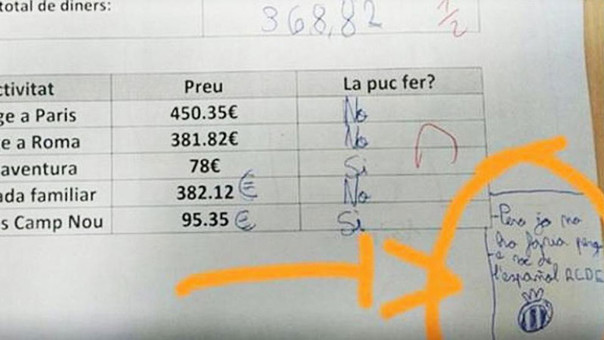 total de diners:
368,82
1/2
ctivitat Preu La puc fer?
ge a Paris 450.35€ No
e a Roma 381.82€ No
aventura 78€ Si
ada familiar 382.12 € No
s Camp Nou 95.35 € Si
-Pero jo no
ho faria perq
e soc de
l'español RCDE